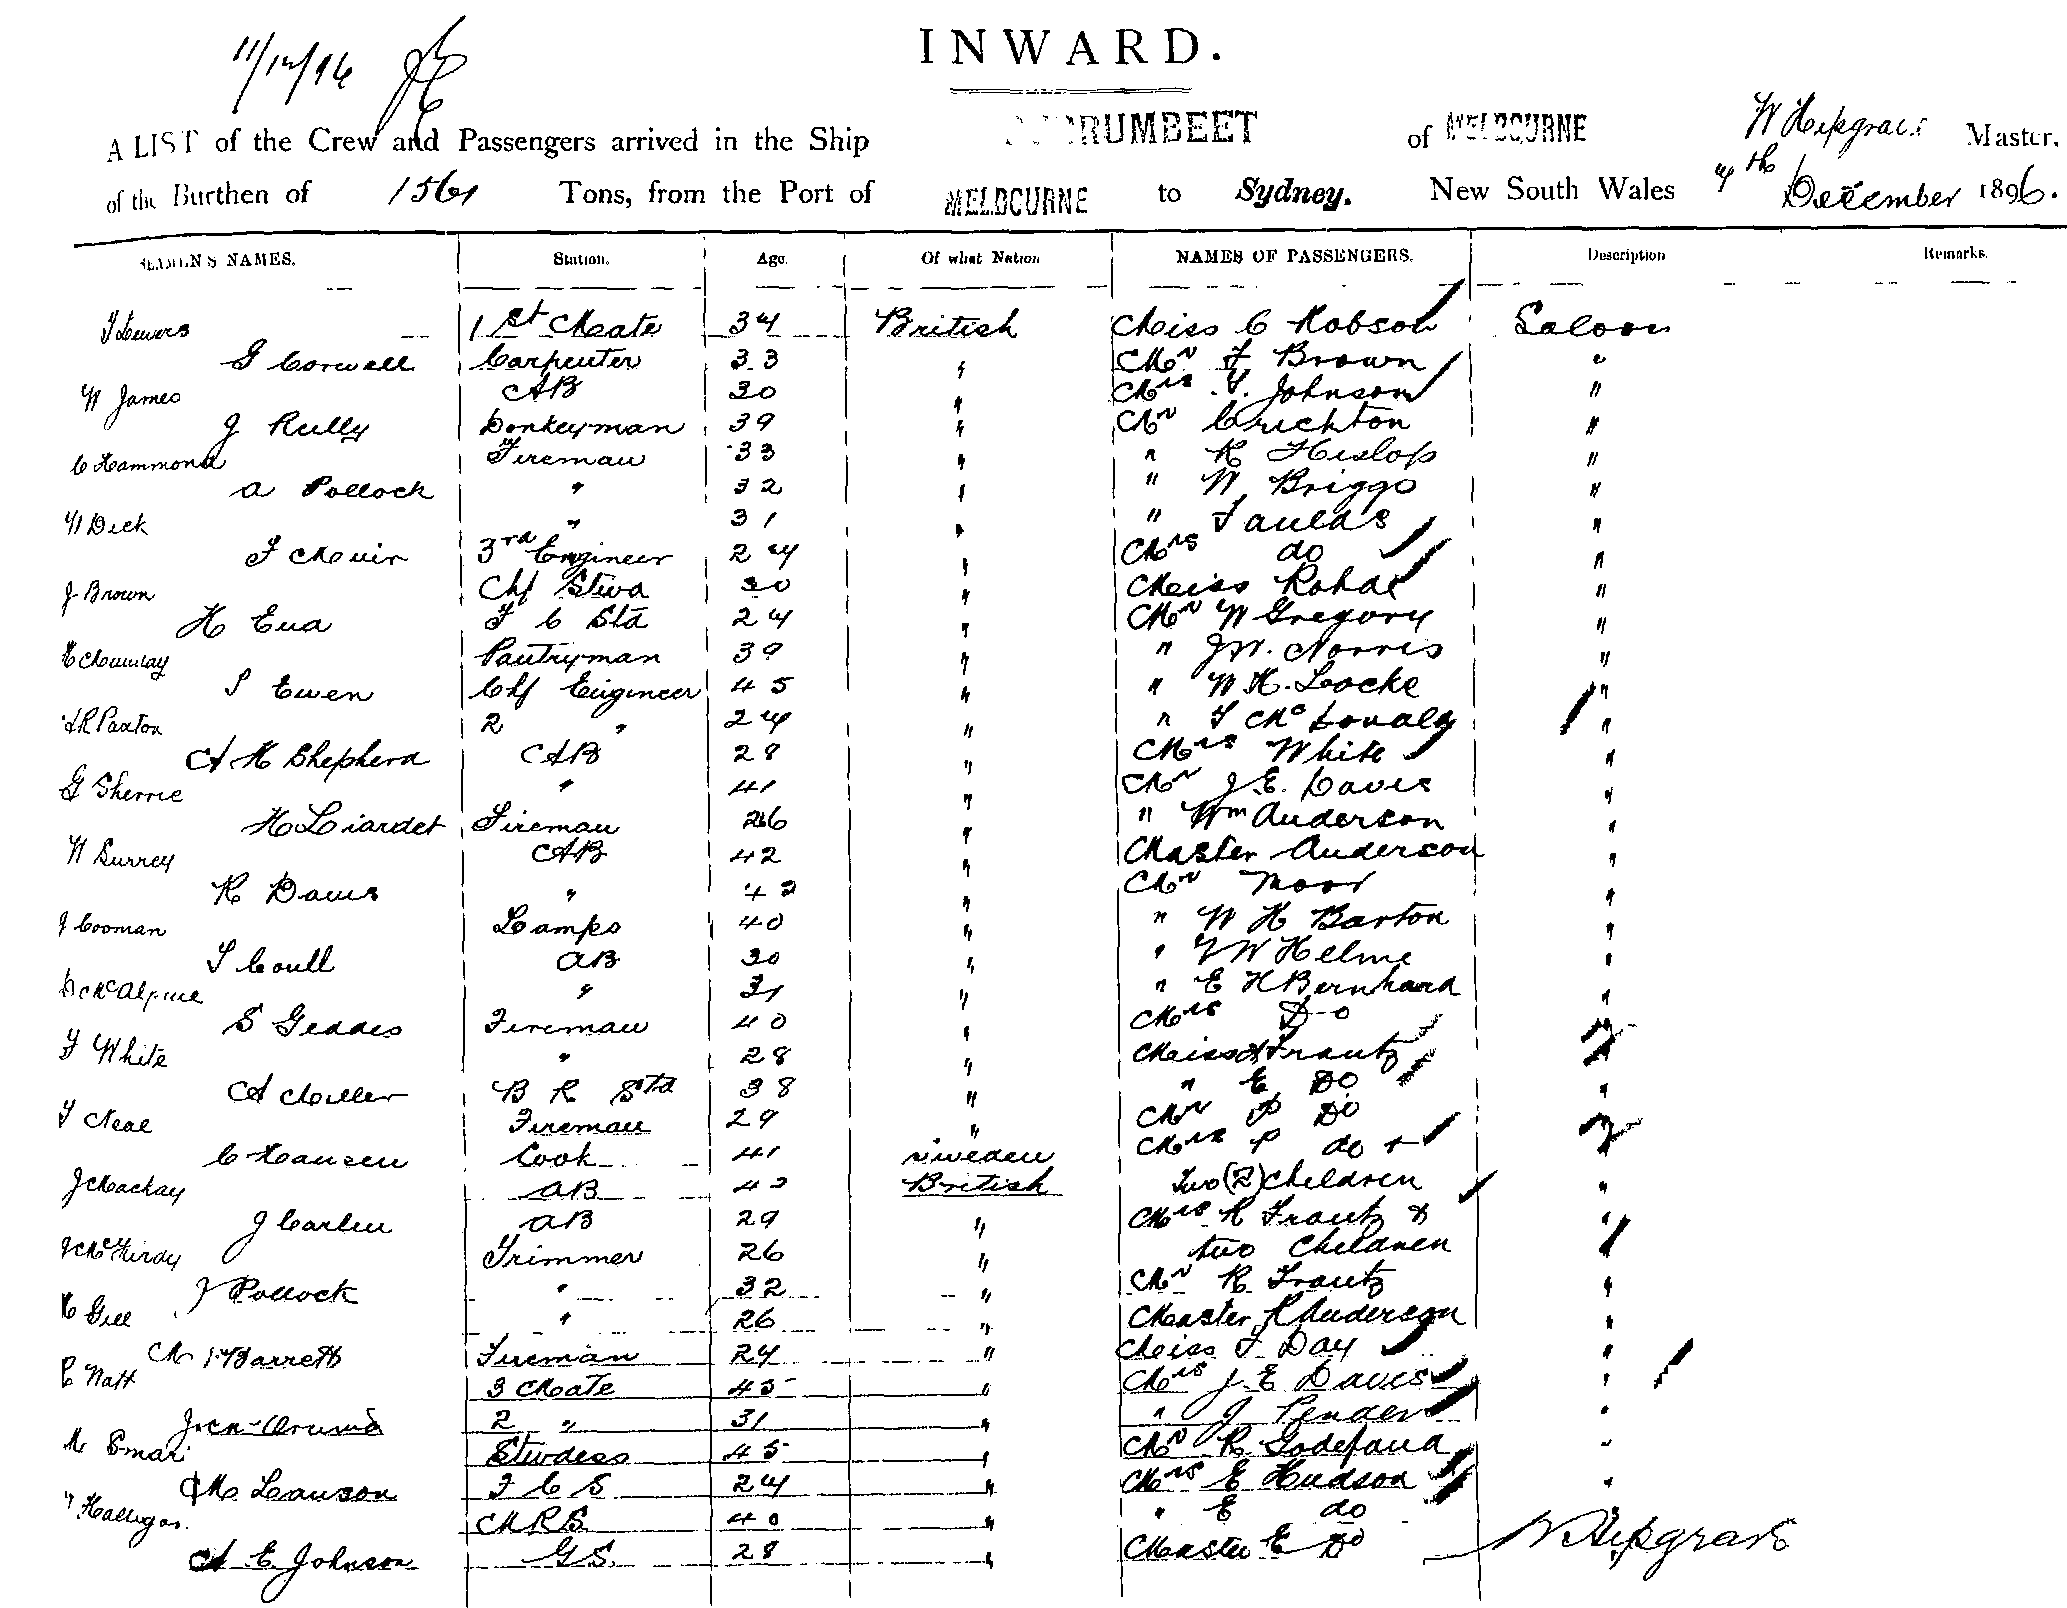 11/12/96
INWARD.
A LIST of the Crew and Passengers arrived in the Ship RUMBEET of MELBOURNE W Hipgrave Master.
of the Burthen of 1561 Tons, from the Port of MELBOURNE to Sydney. New South Wales December 1896.
SEAMEN'S NAMES. Station. Age. Of what Nation NAMES OF PASSENGERS. Description Remarks.
1st Mate 34 British Miss C Robson Saloon
G Corwell Carpenter 33 " Mr F Brown "
W James AB 30 " Mrs T. Johnson "
J Rully Donkeyman 39 " Mr Crichton "
C Hammond Fireman 33 " " R Hislop "
A Pollock " 32 " " W Briggs "
W Dick " 31 " " Faulds "
F Muir 3rd Engineer 24 " Mrs do "
J Brown Chf Stwd 30 " Miss "
H Eva F C Std 24 " Mr W Gregory "
Pantryman 39 " " J W. Norris "
S Ewen Chf Engineer 45 " " W H. Locke "
Paxton 2 " 24 " " "
A M Shepherd AB 28 " Mrs White "
G Sherrie " 41 " Mr J. E. Davis "
H Liardet Fireman 26 " " Wm Anderson "
W Surrey AB 42 " Master Anderson "
R Davis " 42 " Mr Moor "
J Cooman Lamps 40 " " W H Barton "
T Coull AB 30 " " W Helme "
D McAlpine " 31 " " E H Bernhard "
S Geddes Fireman 40 " Mrs Do
F White " 28 " Miss Frantz
A Moller B R Std 38 " " E Do "
T Neal Fireman 29 " Mr P Do
C Hansen Cook 41 Sweden Mrs P do +
J Mackay AB 42 British Two (2) Children "
J Carlin AB 29 " Mrs R Frantz & "
Trimmer 26 " two Children
J Pollock " 32 " Mr R Frantz "
E Gill " 26 " Master R Anderson "
M Barrett Fireman 24 " Miss F Day "
Natt 3 Mate 45 " Mrs J. E Davis "
2 " 31 " " J Pender "
Stwdess 45 " Mr R "
M Lawson F C S 24 " Mrs E Hudson "
Halligan 40 " " E do
A E Johnson G S. 28 " Master E Do W Hipgrave